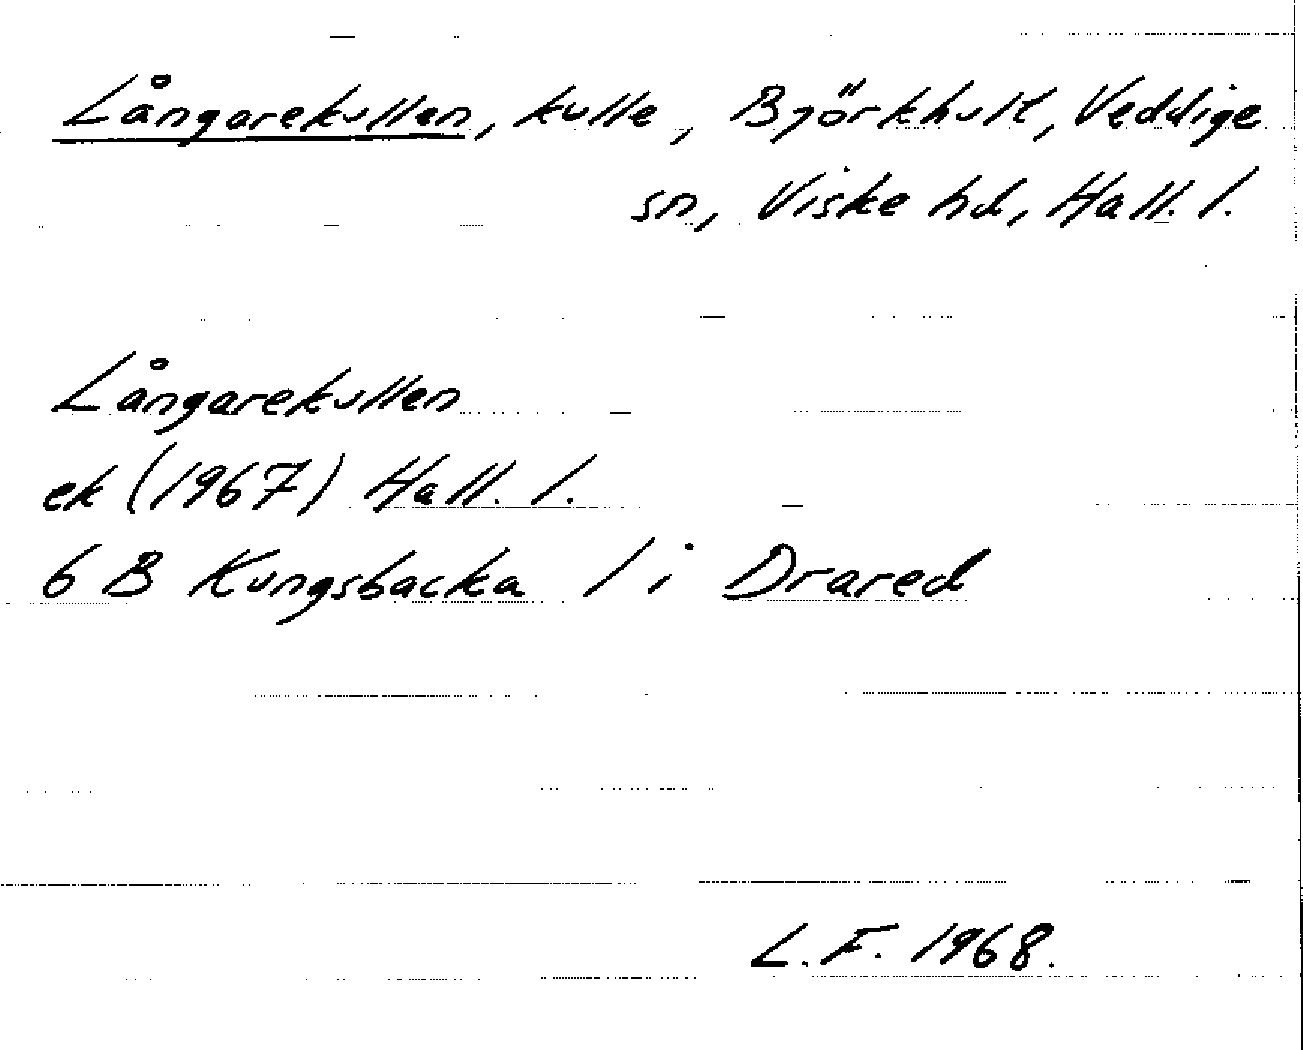 Långarekullen, kulle, Björkhult, Veddige
sn, Viske hd, Hall. l.
Långarekullen
ek (1967) Hall. l.
6 B Kungsbacka 1 i Drared
L.F. 1968.